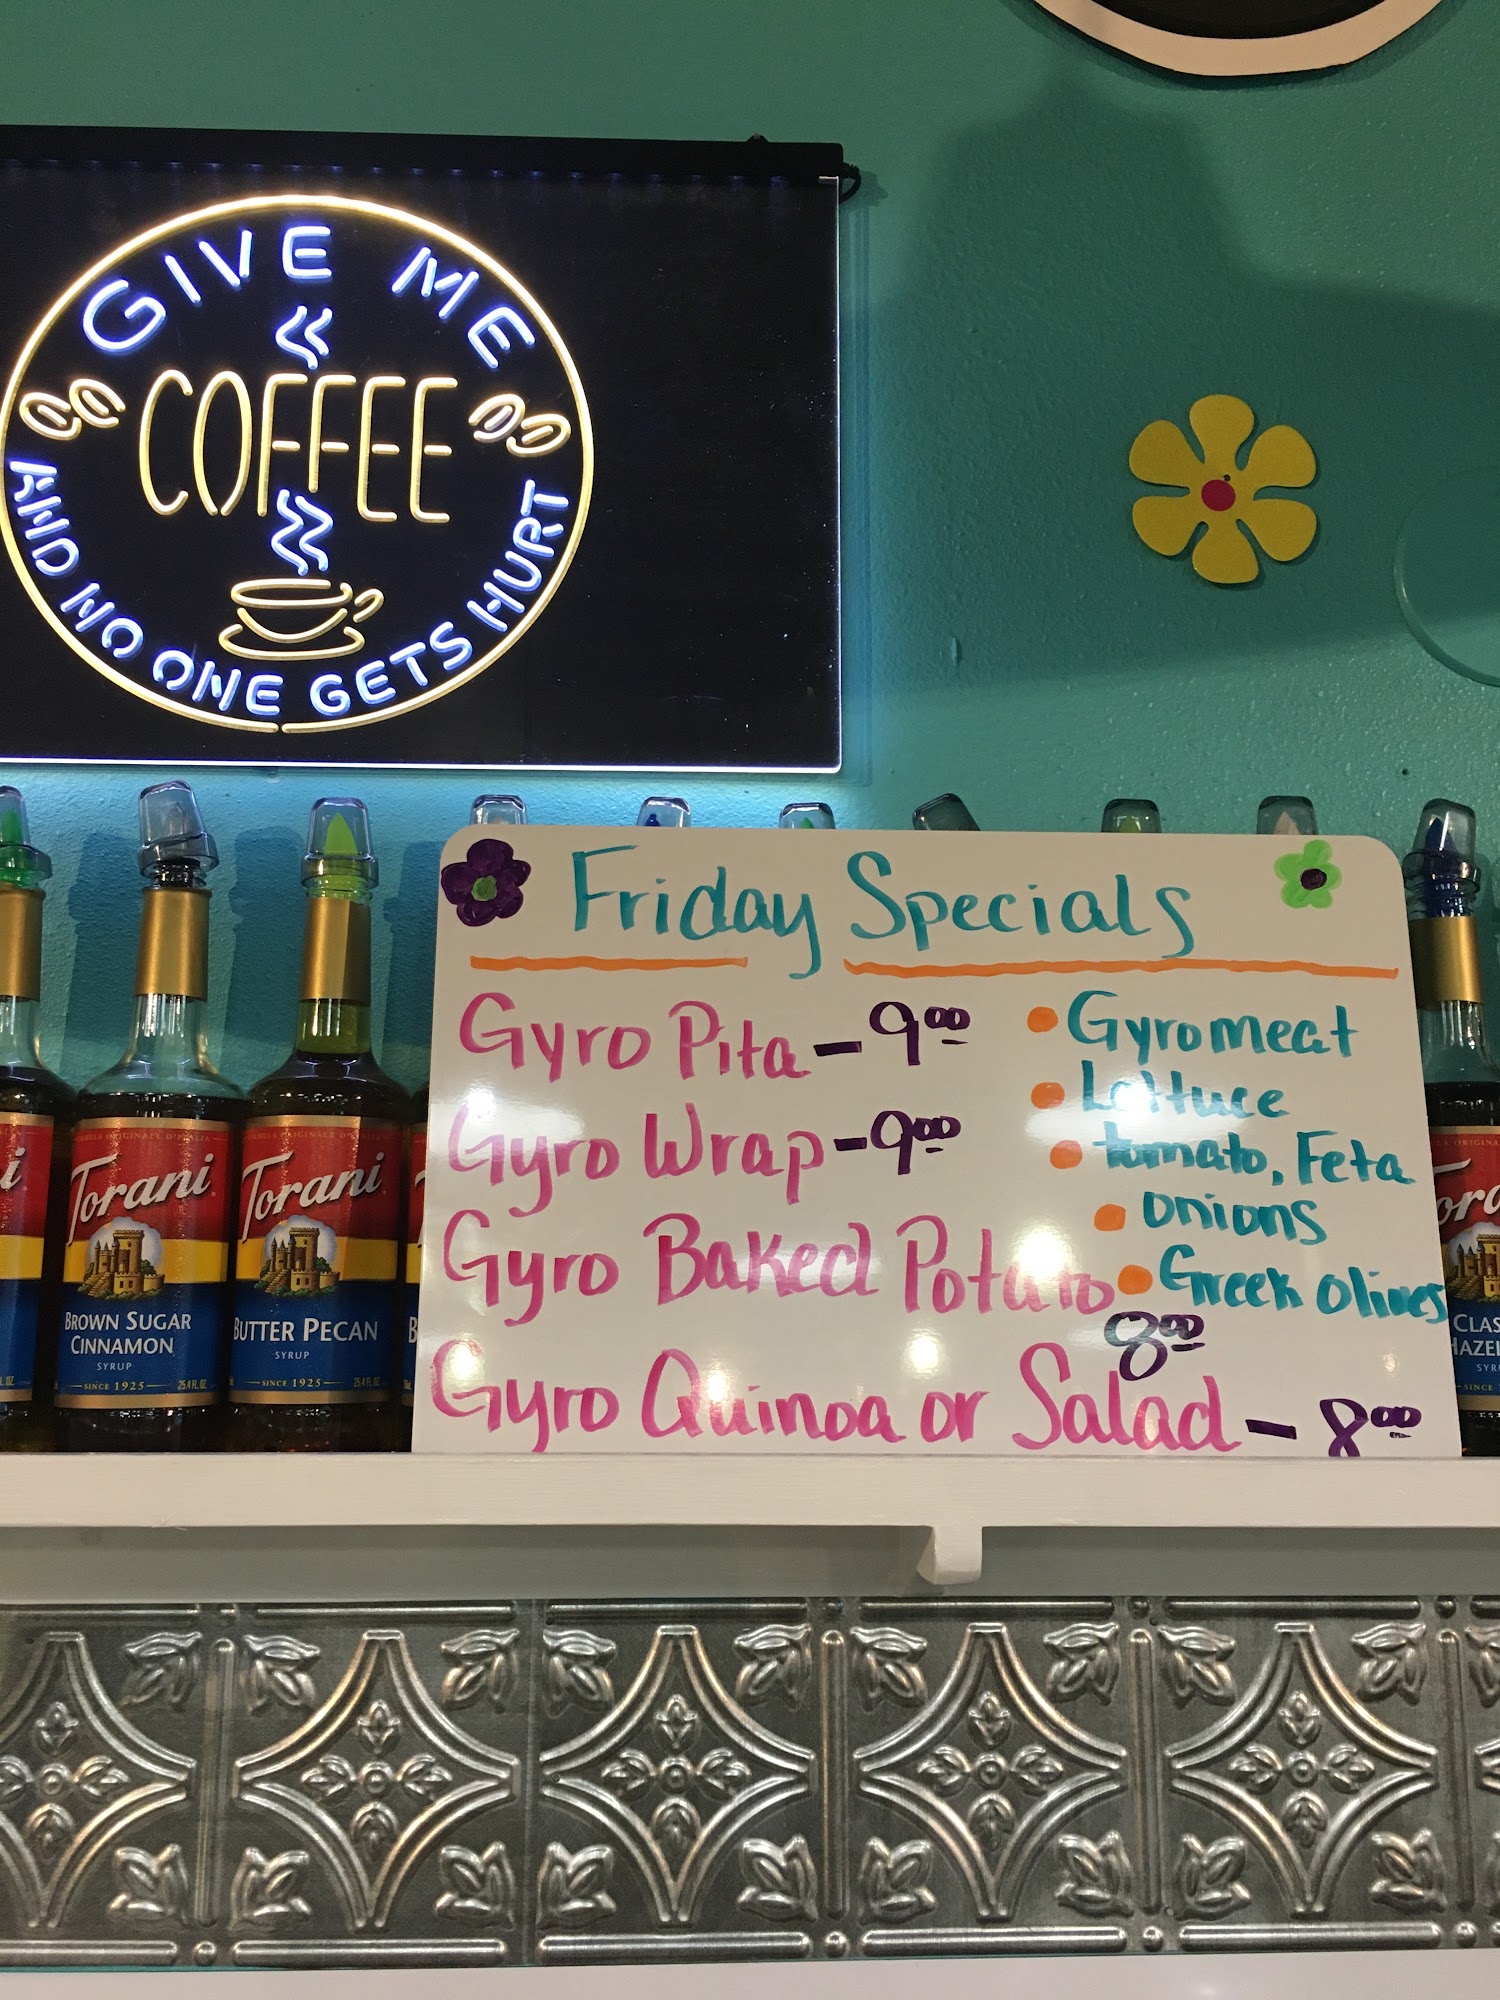 GIVE ME
COFFEE
AND NO ONE GETS HURT
Friday Specials
Gyro Pita - 9.00
Gyro Wrap - 9.00
Gyro Baked Potato
8.00
Gyro Quinoa or Salad - 8.00
• Gyro meat
• Lettuce
• tomato, Feta
• onions
• Greek olives
Torani
BROWN SUGAR
CINNAMON
SYRUP
SINCE 1925
25.4 FL.OZ.
Torani
BUTTER PECAN
SYRUP
SINCE 1925
25.4 FL.OZ.